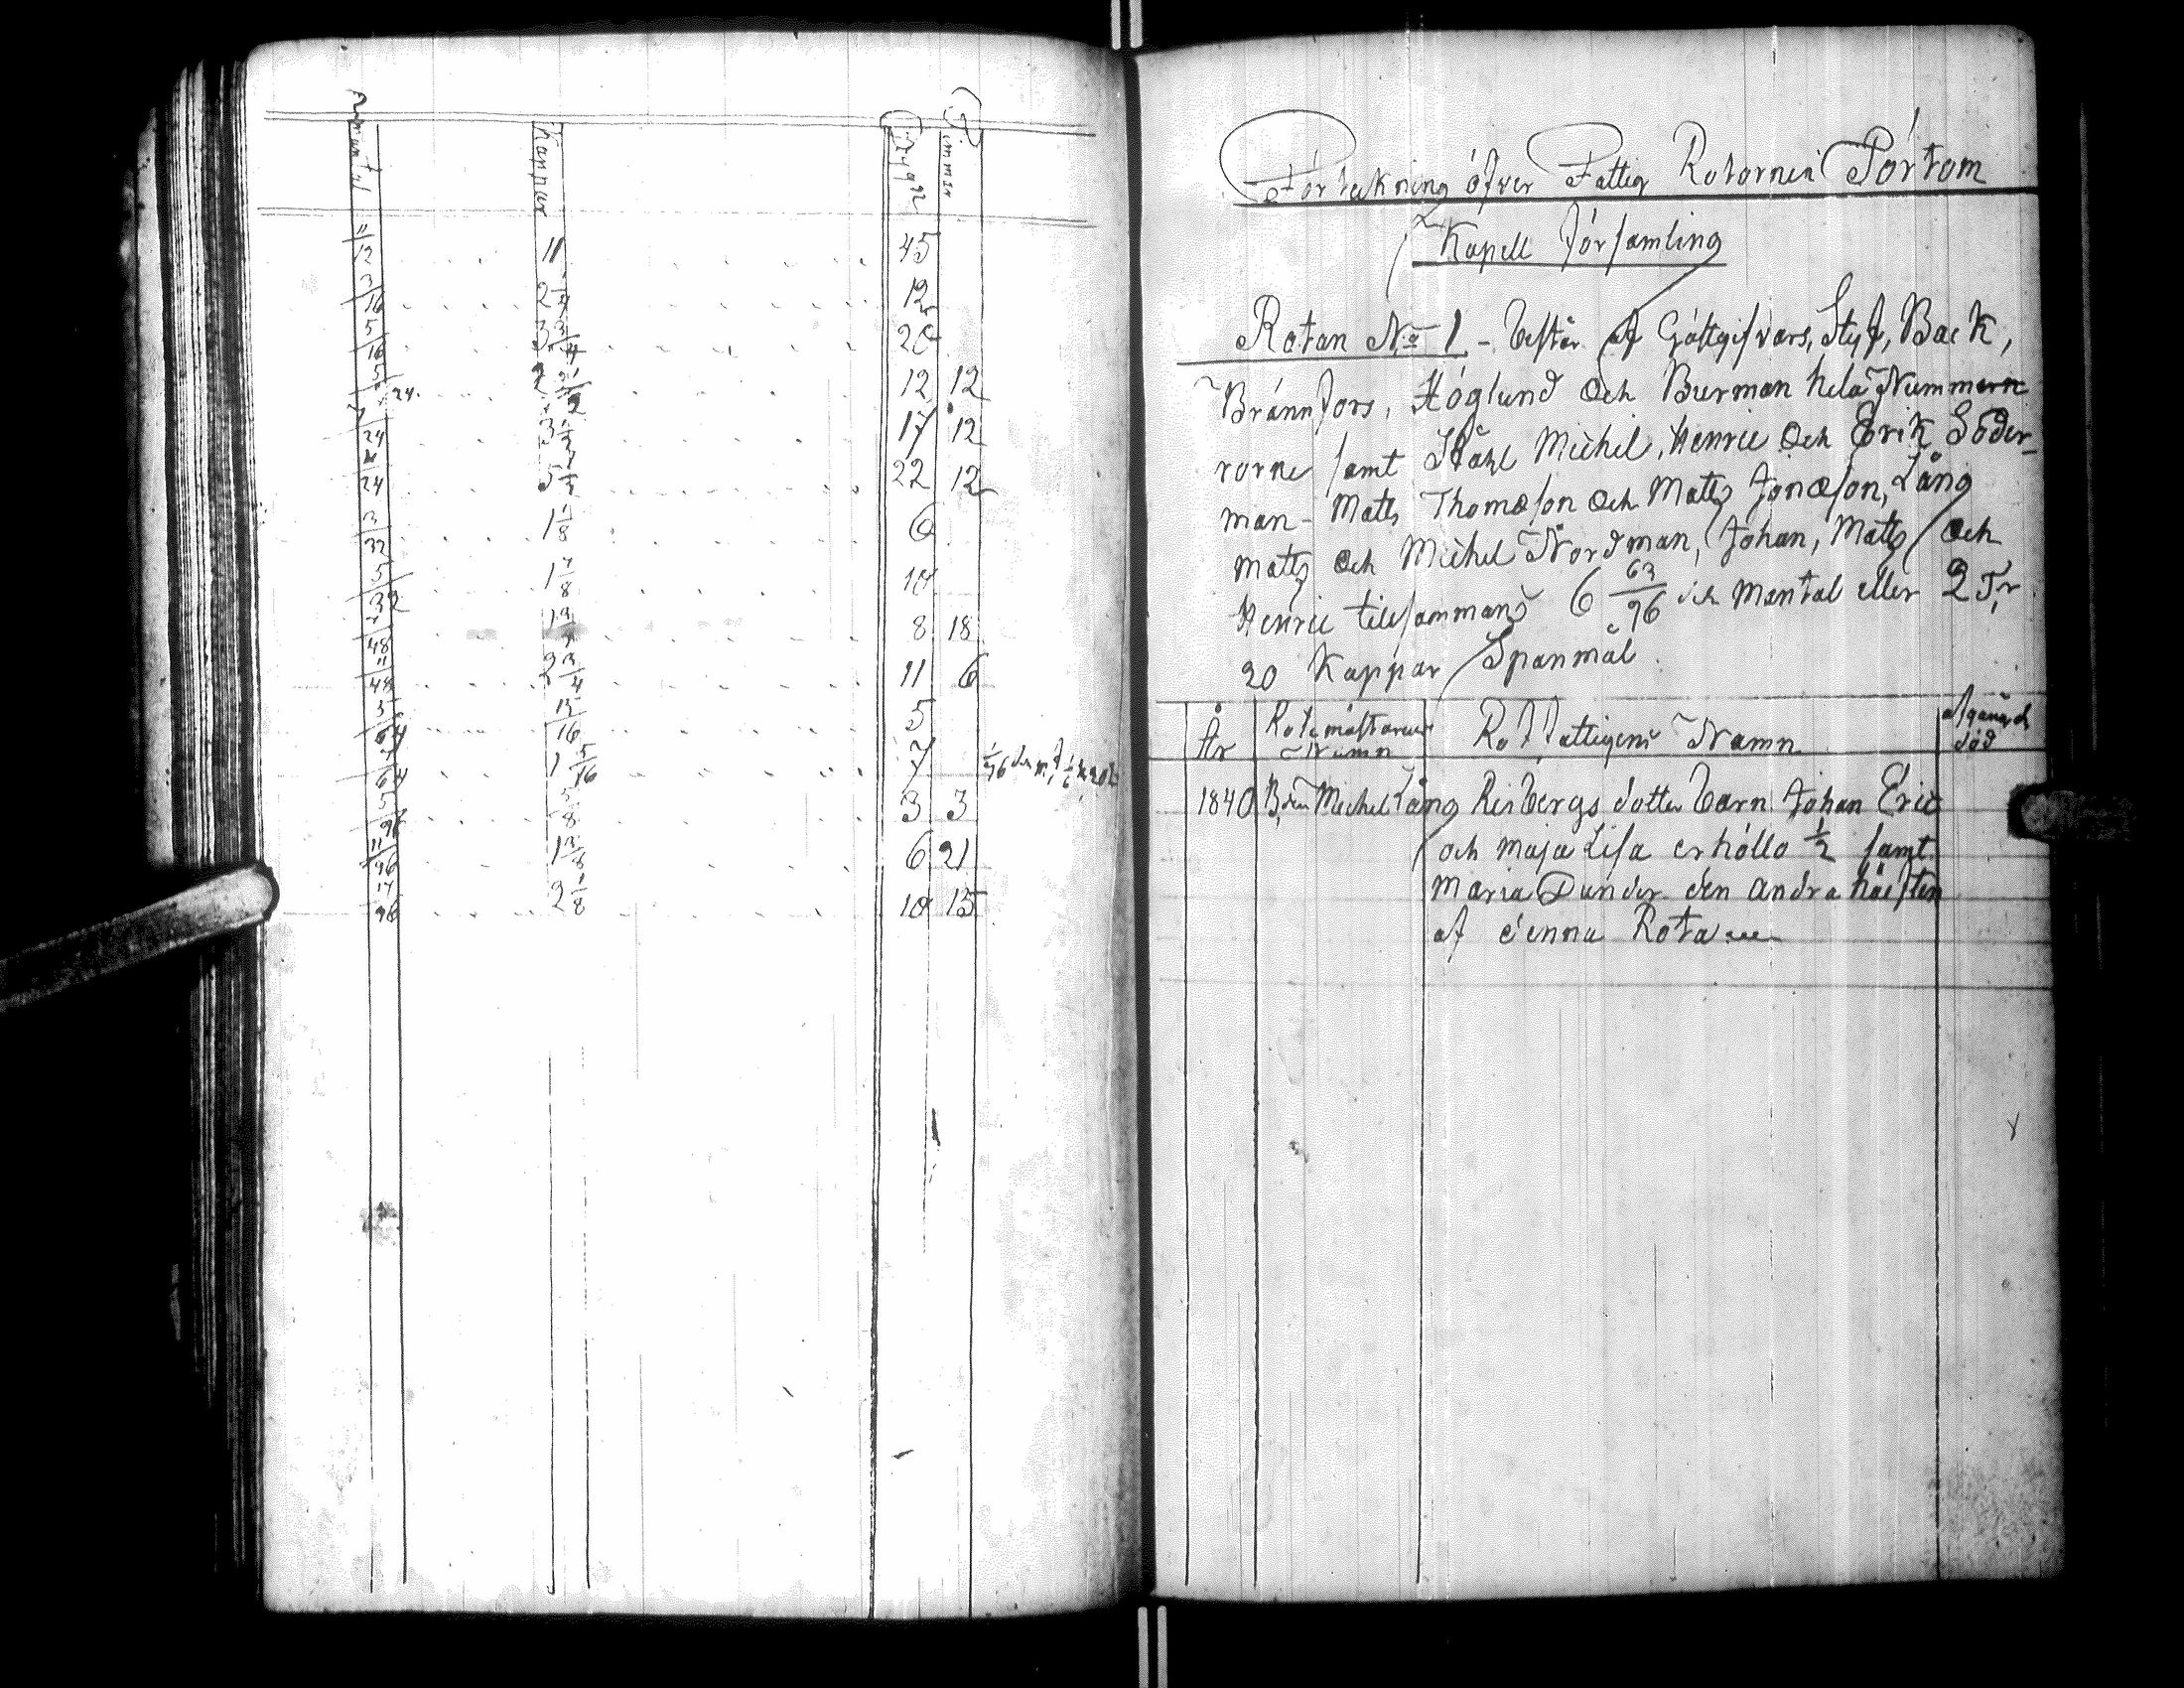 mantal Kappar Trygg Timmer
11/12 11 45
3/16 2 1/4 12
5/16 3 3/4 20
5/24 2 1/2 12 12
7/24 3 1/2 17 12
5 22 12
3/32 1 1/8 6
5/32 1 7/8 10
7/48 1 3/4 8 18
11/48 2 3/4 11 6
5/64 15/16 5
7/64 1 5/16 7
5/96 5/8 3 3
11/96 1 3/8 6 21
17/96 2 1/8 10 15
Förteckning öfver Fattig Rotorne i Pörtom
Kapell Församling
Rotan No 1 - Består af Gästgifvars, Styf, Back,
Brännfors, Höglund Och Burman hela Nummern
rorne samt Ståhl Michel, Henric Och Erik Söder-
man - Matts Thomasson Och Matts Jonasson, Lång
matts Och Michel Nordman, Johan, Matts Och
Henric tilsammans 6 63/96 dels Mantal eller 2 Tr
20 Kappar Spanmål.
År Rotemästarens Namn Rotfattigens Namn afgång död
1840 B,den Michel Lång Reisbergs dotter barn Johan Eric
och Maja Lisa erhöllo 1/2 samt
Maria Dunder den andra hälften
af denna Rota